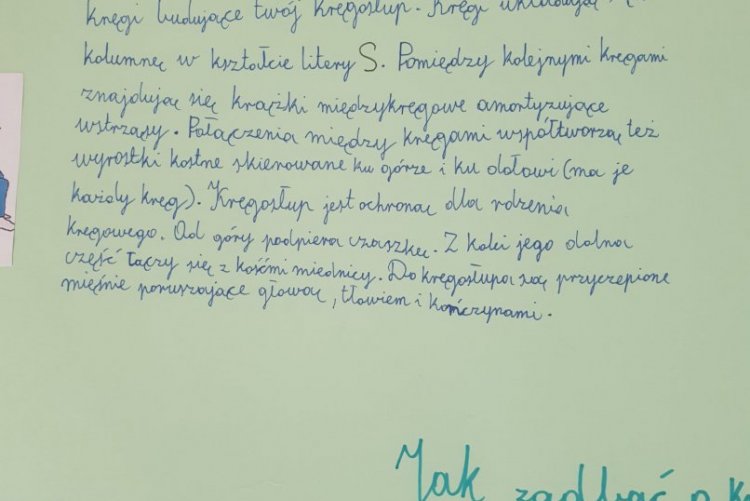 kręgi budujące twój kręgosłup. Kręgi układają
kolumnę w kształcie litery S. Pomiędzy kolejnymi kręgami
znajdują się krążki międzykręgowe amortyzujące
wstrząsy. Połączenia między kręgami współtworzą też
wyrostki kostne skierowane ku górze i ku dołowi (ma je
każdy kręg). Kręgosłup jest ochroną dla rdzenia
kręgowego. Od góry podpiera czaszkę. Z kolei jego dolna
część łączy się z kośćmi miednicy. Do kręgosłupa są przyczepione
mięśnie poruszające głową, tłowiem i kończynami.
Jak zadbać o